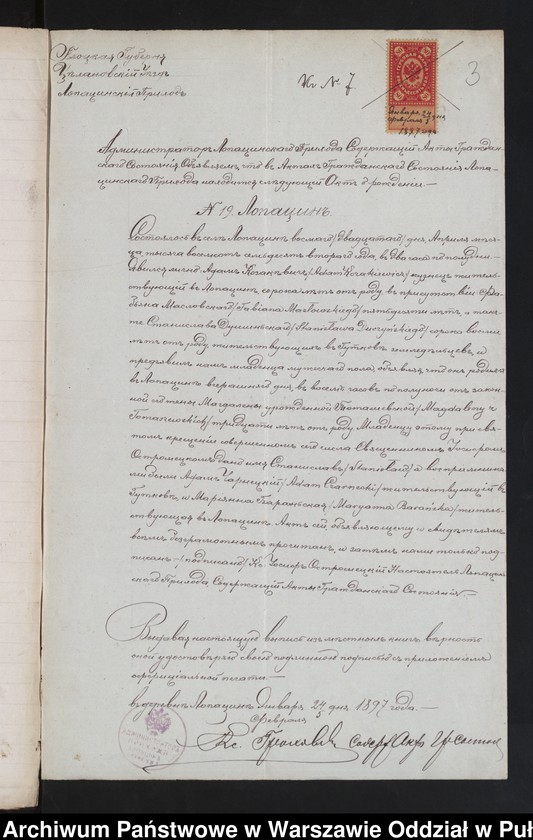 Плоцкая Губернія
Цѣхановскій Уѣздъ
Лопацинскій Приходъ
Къ № 7
3
Января 24 дня
Февраля 5
1897 года
Администраторъ Лопацинскаго Прихода Содержащій Акты Граждан-
скаго Состоянія Объявляетъ что въ Актахъ Гражданскаго Состоянія Лопа-
цинскаго Прихода находится слѣдующій Актъ о рожденіи —
N 19. Лопацинъ.
Состоялось въ селѣ Лопацинѣ восьмаго /двадцатаго/ дня Апрѣля мѣся-
ца, тысяча восемьсотъ семьдесятъ втораго года, въ два часа по полудни.
Явился лично Адамъ Козакевичъ /Adam Kozakiewicz/ кузнецъ житель-
ствующій въ Лопацинѣ, сорока лѣтъ отъ роду, въ присутствіи Фа-
біяна Масловскаго /Fabiana Masłowskiego/ пятидесяти лѣтъ, а так-
же Станислава /Stanisława/ сорока восьми
лѣтъ отъ роду, жительствующихъ въ Гутковѣ земледѣльцевъ, и
предъявилъ намъ младенца мужескаго пола, объявляя, что онъ родился
въ Лопацинѣ вчерашняго дня, въ восемь часовъ по полуночи отъ закон-
ной его жены Магдалены урожденной Томашевской /Magdaleny z
Tomaszewskich/ тридцати лѣтъ отъ роду. Младенцу этому при свя-
томъ крещеніи совершенномъ сего числа Священникомъ Іосифомъ
Остромецкимъ дано имя Станиславъ /Stanisław/ а воспріемника-
ми были Адамъ Чарнецкій /Adam Czarnecki/ жительствующій въ
Гутковѣ, и Маріянна Бараньская /Maryanna Barańska/ житель-
ствующая въ Лопацинѣ. Актъ сей объявляющему и свидѣтелямъ
всѣмъ безграмотнымъ прочитанъ, и затѣмъ нами только под-
писанъ. / подписано/ Кс. Іосифъ Остромецкій Настоятель Лопацин-
скаго Прихода, Содержащій Акты Гражданскаго Состоянія.
Выдавая настоящую выпись изъ мѣстныхъ книгъ вѣрность
оной удостовѣряю своею подлинною подписью съ приложеніемъ
оффиціальной печати. —
въ деревнѣ Лопацинъ Января 24 дня 1897 года. —
Февраля 5
Кс. Содерж. Акты Гр. Состоян.
Archiwum Państwowe w Warszawie Oddział w Puł